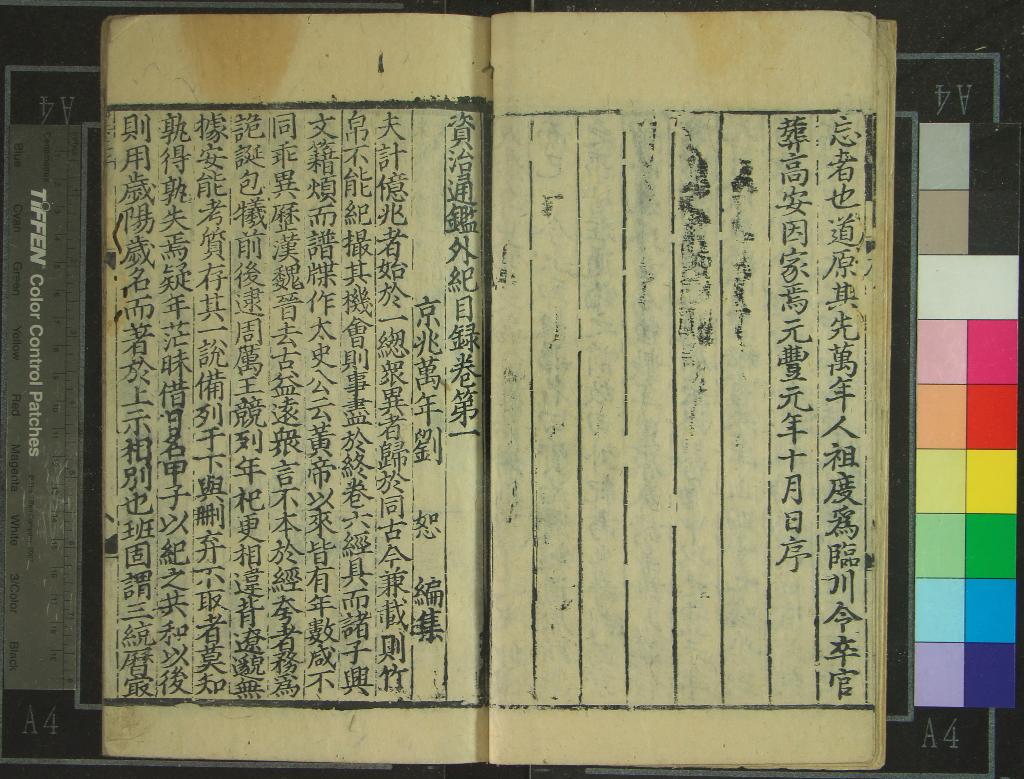 忘者也道原其先萬年人祖度爲臨川令卒官
葬高安因家焉元豐元年十月日序
資治通鑑外紀目録卷第一
京兆萬年劉 恕 編集
夫計億兆者始於一總衆異者歸於同古今兼載則竹
帛不能紀撮其機會則事盡於終卷六經具而諸子興
文籍煩而譜牒作太史公云黄帝以來皆有年數咸不
同乖異歷漢魏晉去古益遠衆言不本於經夸者務爲
詭誕包犧前後逮周厲王競列年祀更相違背遼邈無
據安能考質存其一說備列于下與刪弃不取者莫知
孰得孰失焉疑年茫昧借日名甲子以紀之共和以後
則用歲陽歲名而著於上示相別也班固謂三統曆最
TIFFEN Color Control Patches
Blue
Cyan
Green
Yellow
Red
Magenta
White
3/Color
Black
A4
A4
A4
A4